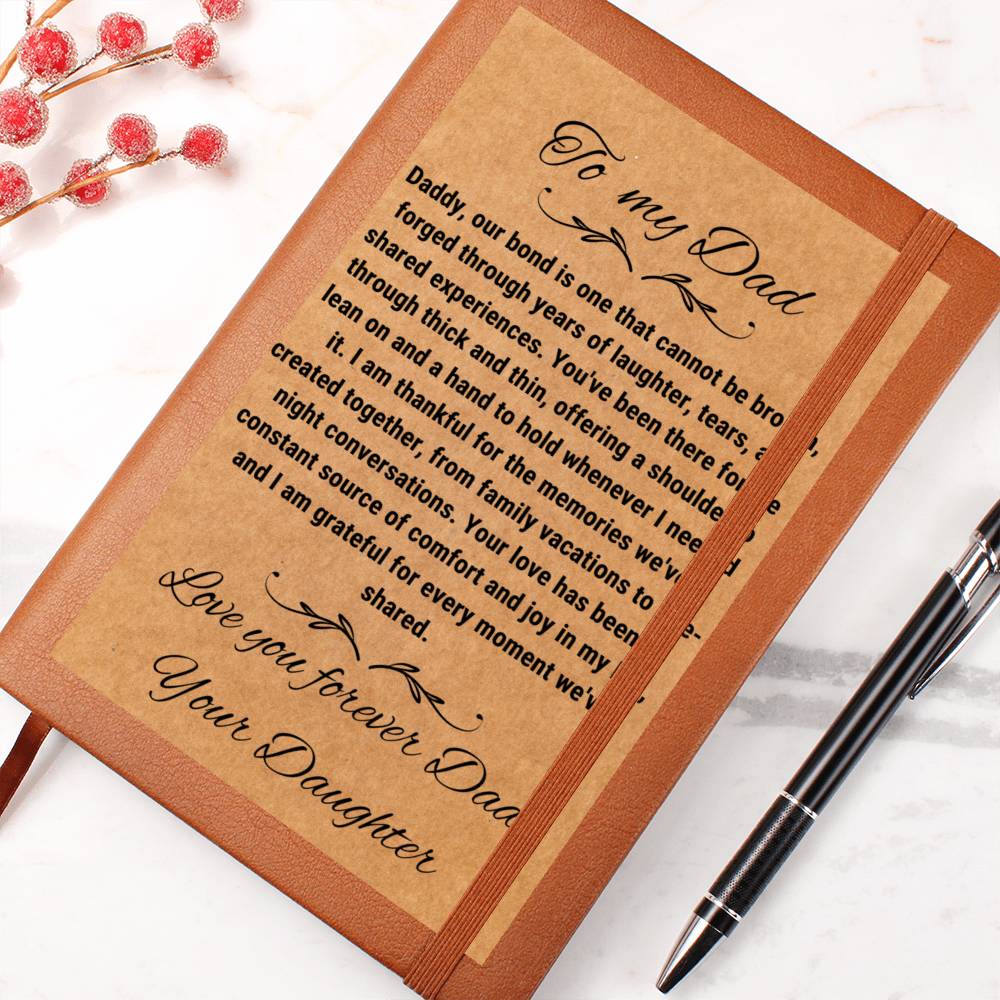 To my Dad
Daddy, our bond is one that cannot be
forged through years of laughter, tears,
shared experiences. You've been there for
through thick and thin, offering a shoulder
lean on and a hand to hold whenever I need
it. I am thankful for the memories we've
created together, from family vacations to
night conversations. Your love has been
constant source of comfort and joy in my
and I am grateful for every moment we've
shared.
Love you forever Dad
Your Daughter